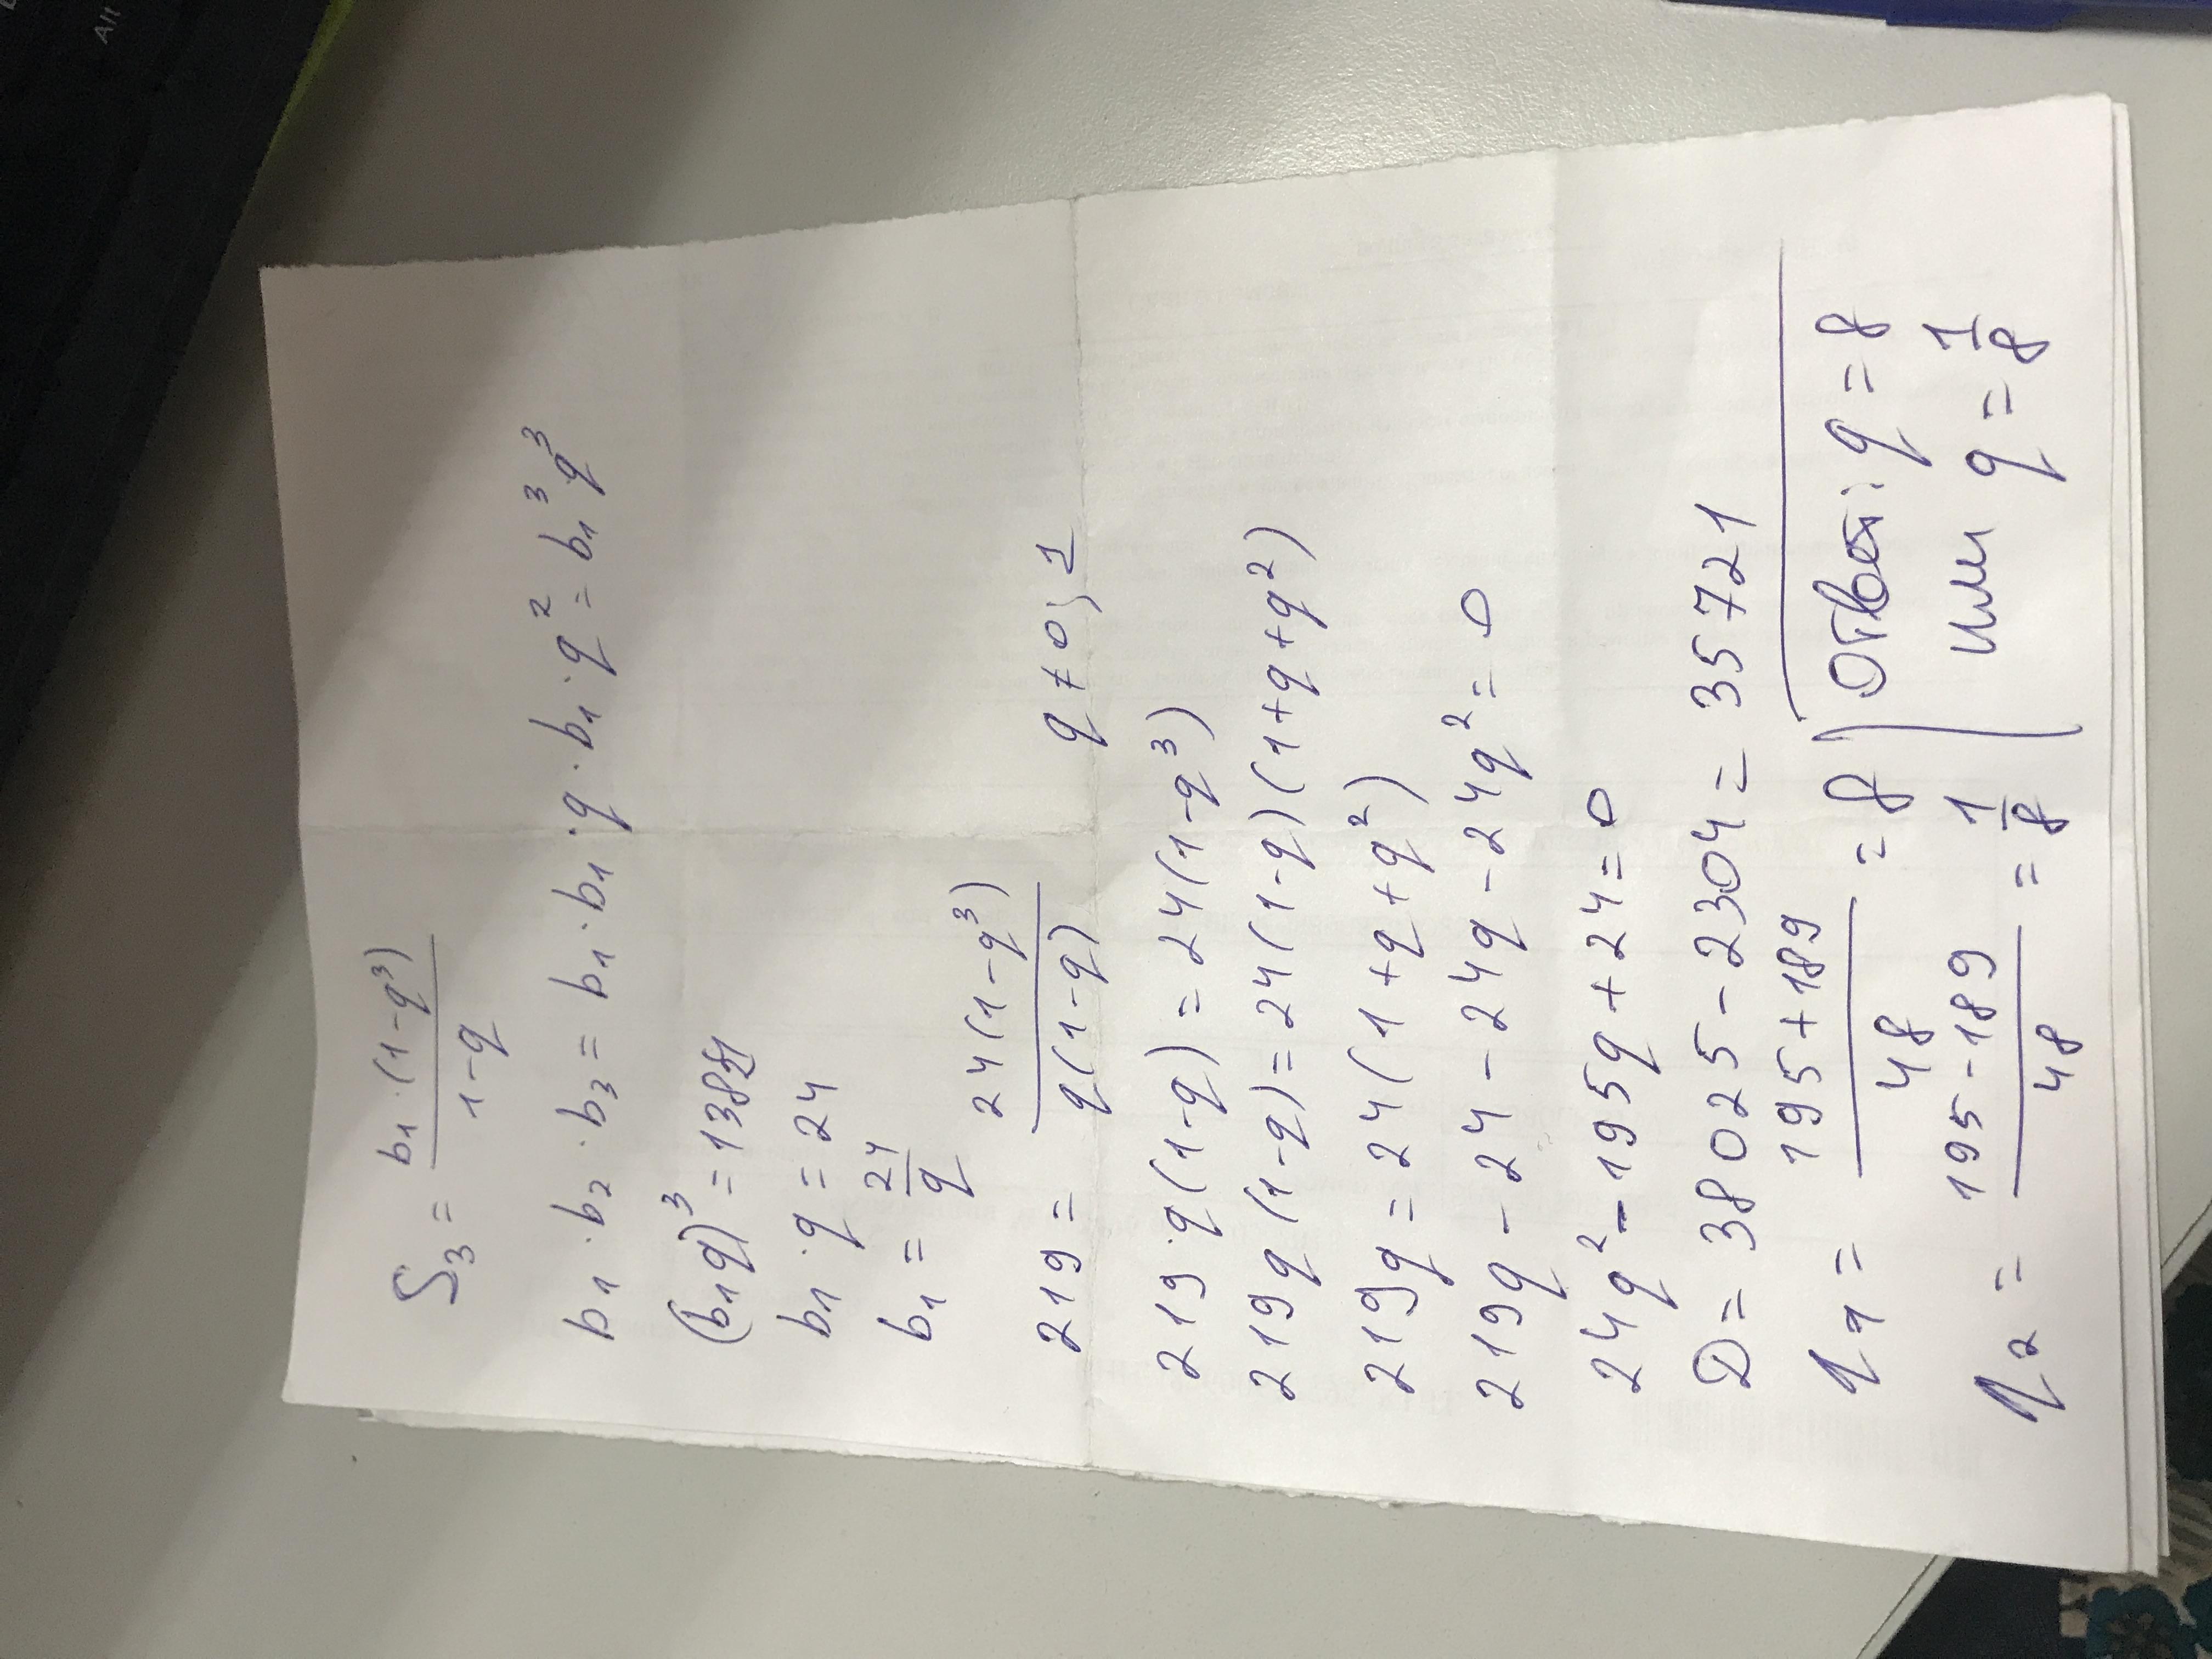 S₃ = b₁·(1-q³) / 1-q
b₁·b₂·b₃ = b₁·b₁·q·b₁·q² = b₁³q³
(b₁q)³ = 138
b₁·q = 24
b₁ = 24/q
219 = 24(1-q³) / q(1-q) q ≠ 0; 1
219·q(1-q) = 24(1-q³)
219q(1-q) = 24(1-q)(1+q+q²)
219q = 24(1+q+q²)
219q - 24 - 24q - 24q² = 0
24q² - 195q + 24 = 0
D = 38025 - 2304 = 35721
q₁ = 195+189 / 48 = 8
q₂ = 195-189 / 48 = 1/8
Ответ: q = 8
или q = 1/8
Alt